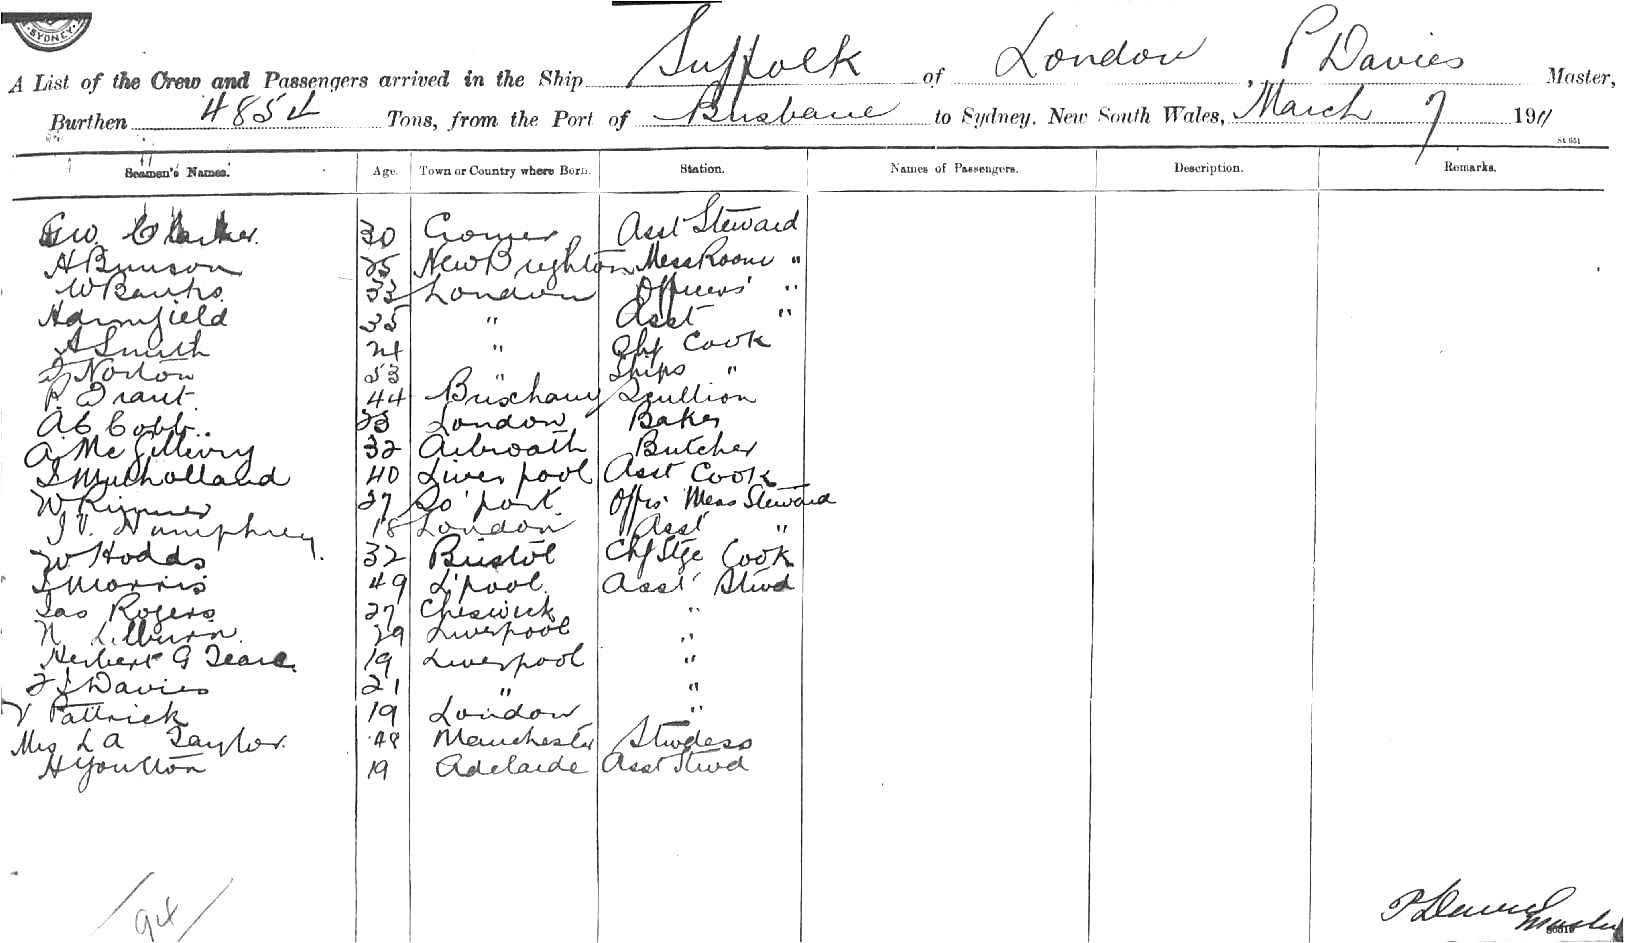 SYDNEY
A List of the Crew and Passengers arrived in the Ship Suffolk of London, P Davies Master,
Burthen 4854 Tons, from the Port of Brisbane to Sydney, New South Wales, March 7 1911
Seamen's Names. Age. Town or Country where Born. Station. Names of Passengers. Description. Remarks.
Geo. C Barker. 30 Cromer Asst Steward
A Brunson 25 New Brighton Mess Room "
W Banks. 33 London Officers' "
Harmfield 35 " Asst "
A Smith 24 " Chf Cook
Norton 53 " Ships "
P. Trant. 44 Brixham Scullion
A C Cobb. 33 London Baker
A McGillivry 32 Arbroath Butcher
Mulholland 40 Liverpool Asst Cook
W Rimmer 27 So'port. Offrs' Mess Steward
Humphrey. 18 London Asst "
W Hodds 32 Bristol Chf Stge Cook
Morris 49 L'pool. Asst Stwd
Jas Rogers 27 Cheswick "
N Lilburn. 29 Liverpool "
Herbert G Teare. 19 Liverpool "
Davies 21 " "
V Pattrick 19 London "
Mrs L A Taylor. 48 Manchester Stwdess
H Youlton 19 Adelaide Asst Stwd
94
P Davies Master